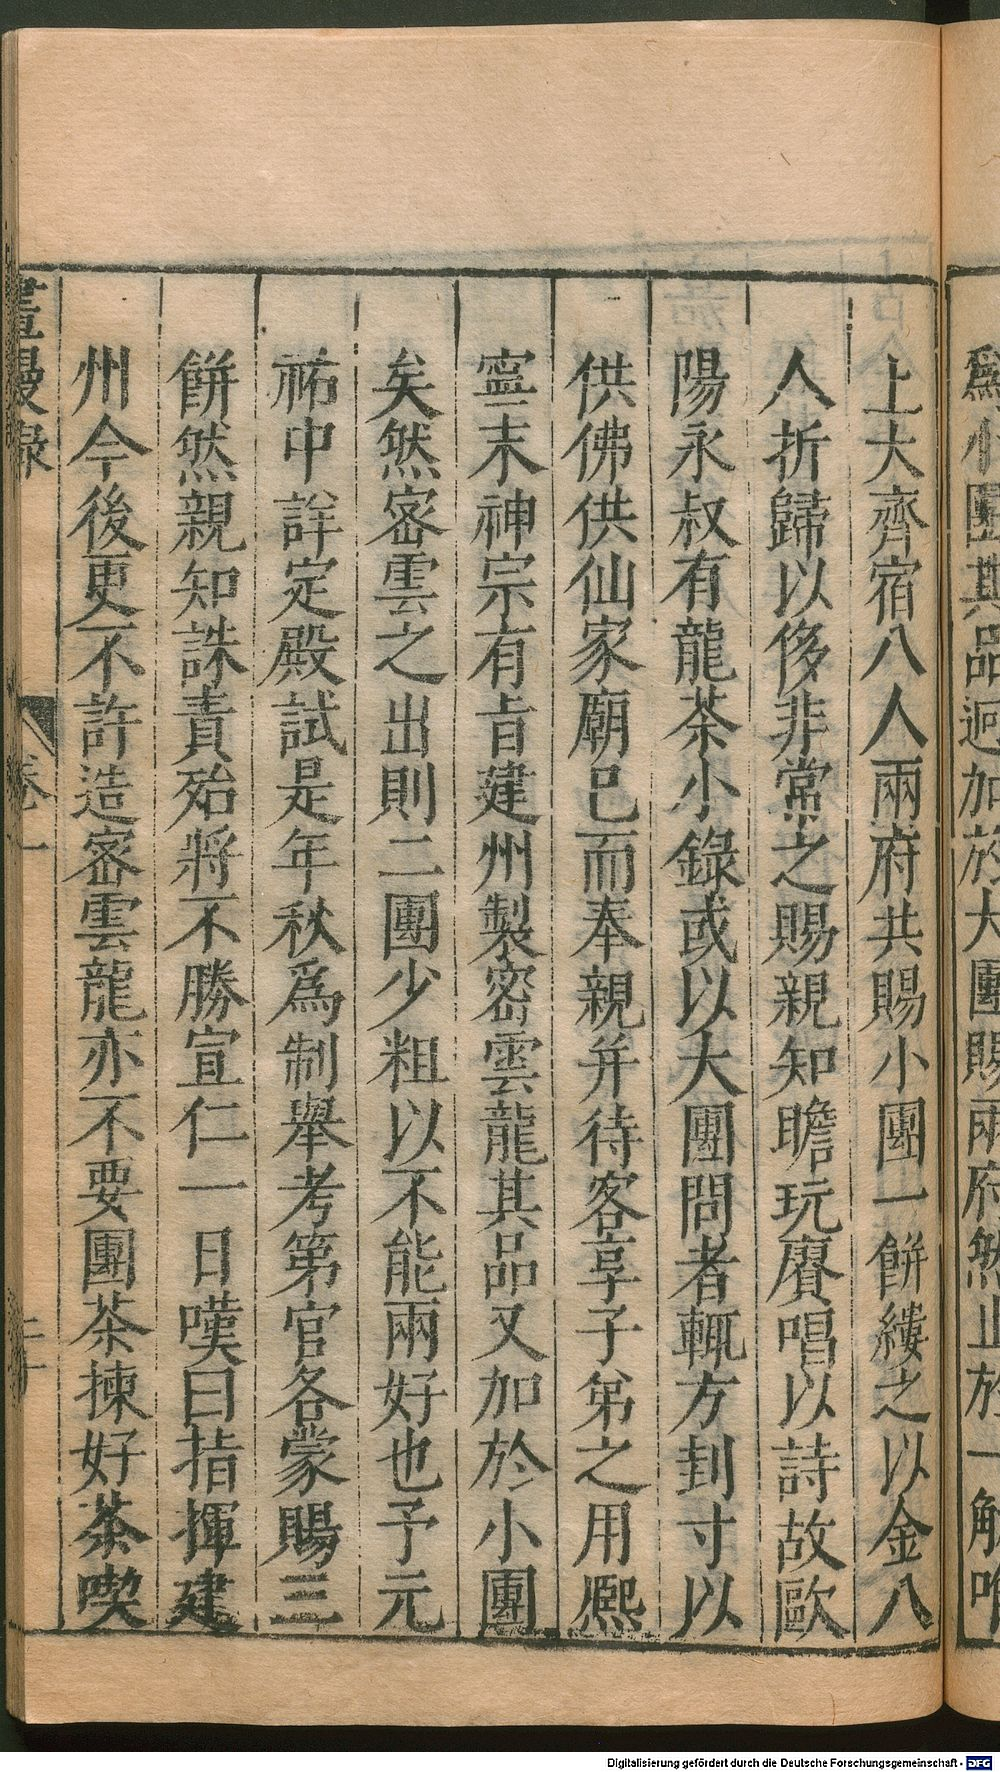 爲小團其品迥加於大團賜兩府然止於一觔唯
上大齊宿八人兩府共賜小團一餅縷之以金八
人折歸以侈非常之賜親知瞻玩賡唱以詩故歐
陽永叔有龍茶小錄或以大團問者輒方刲寸以
供佛供仙家廟已而奉親并待客享子弟之用熈
寧末神宗有旨建州製密雲龍其品又加於小團
矣然密雲之出則二團少粗以不能兩好也予元
祐中詳定殿試是年秋爲制舉考第官各蒙賜三
餅然親知誅責殆將不勝宣仁一日嘆曰指揮建
州今後更不許造密雲龍亦不要團茶揀好茶喫
畫墁錄 卷一 二十
Digitalisierung gefördert durch die Deutsche Forschungsgemeinschaft - DFG